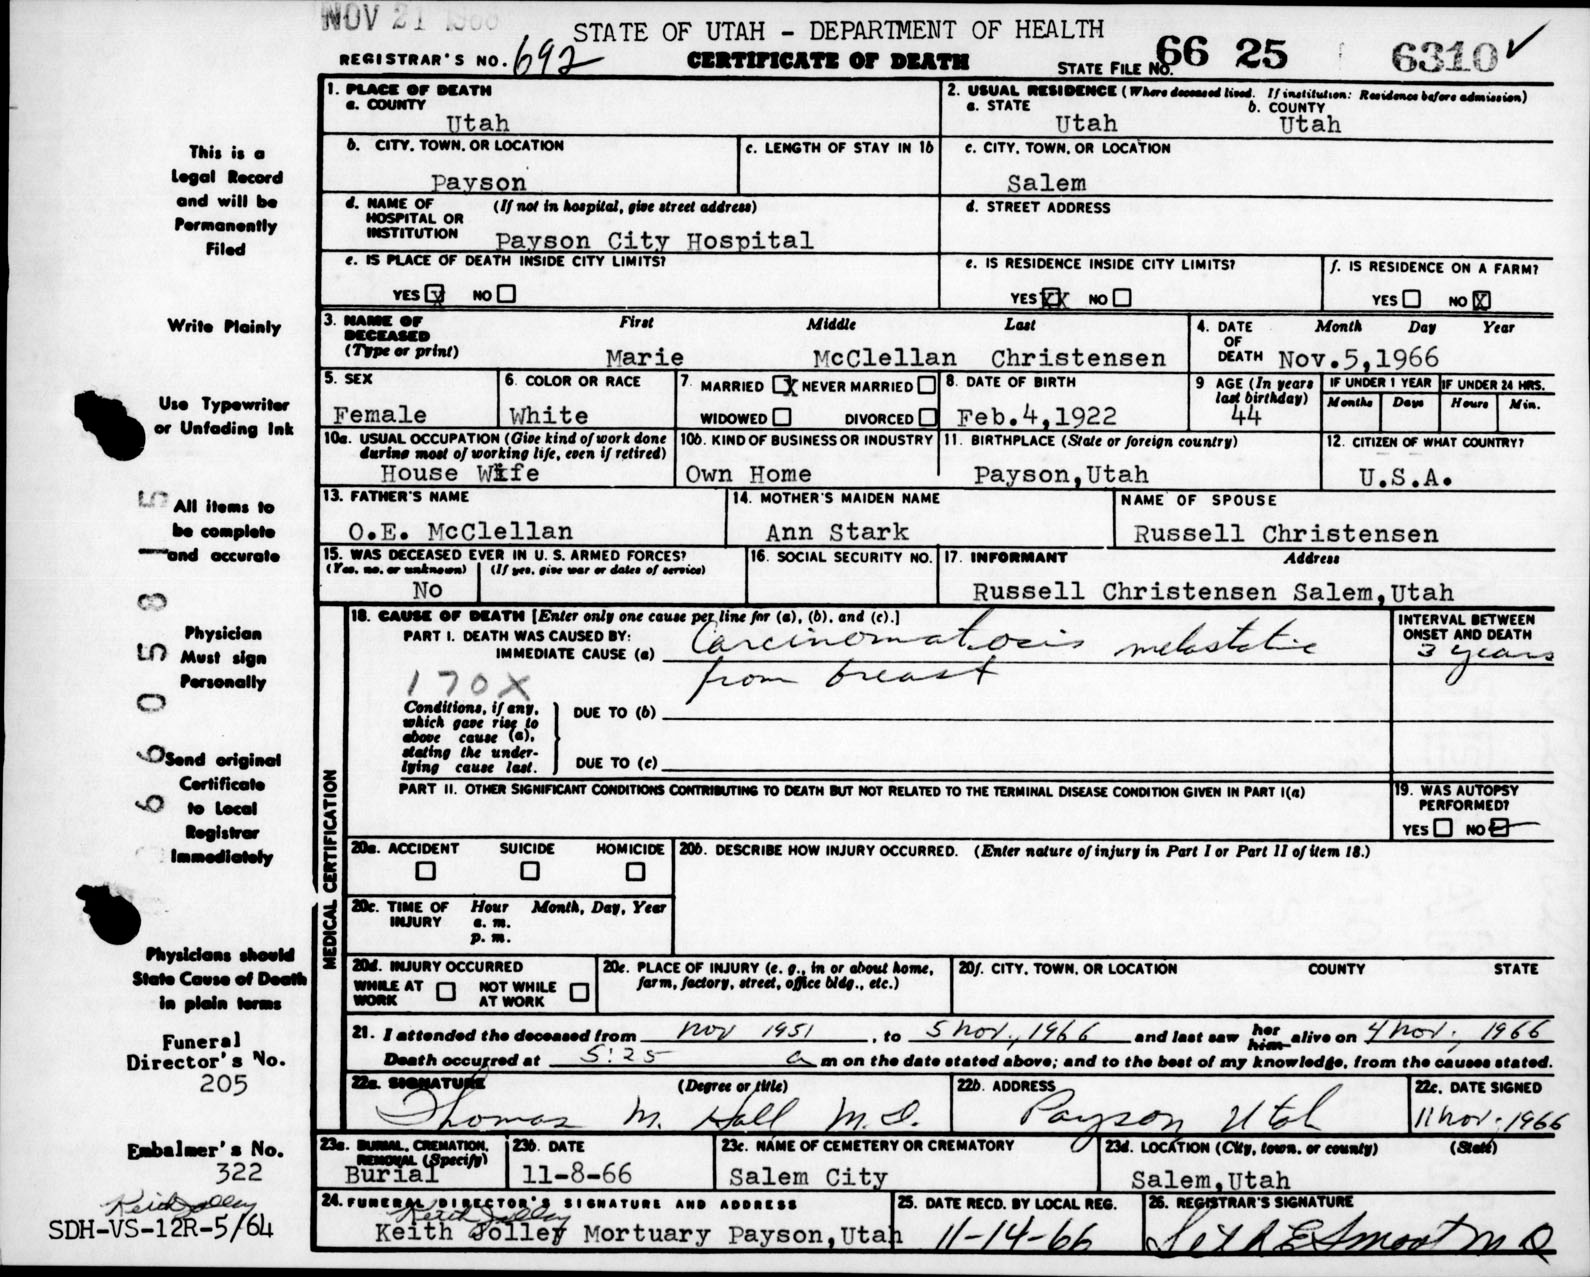 NOV 21 1966
STATE OF UTAH - DEPARTMENT OF HEALTH
REGISTRAR'S NO. 692
CERTIFICATE OF DEATH
STATE FILE NO. 66 25 6310 ✓
This is a
Legal Record
and will be
Permanently
Filed
Write Plainly
Use Typewriter
or Unfading Ink
All items to
be complete
and accurate
Physician
Must sign
Personally
Send original
Certificate
to Local
Registrar
Immediately
Physicians should
State Cause of Death
in plain terms
Funeral
Director's No.
205
Embalmer's No.
322
Keith Jolley
SDH-VS-12R-5/64
1. PLACE OF DEATH
a. COUNTY
Utah
2. USUAL RESIDENCE (Where deceased lived. If institution: Residence before admission)
a. STATE b. COUNTY
Utah Utah
b. CITY, TOWN, OR LOCATION
Payson
c. LENGTH OF STAY IN 1b
c. CITY, TOWN, OR LOCATION
Salem
d. NAME OF (If not in hospital, give street address)
HOSPITAL OR
INSTITUTION Payson City Hospital
d. STREET ADDRESS
e. IS PLACE OF DEATH INSIDE CITY LIMITS?
YES X NO
e. IS RESIDENCE INSIDE CITY LIMITS?
YES XX NO
f. IS RESIDENCE ON A FARM?
YES NO X
3. NAME OF First Middle Last
DECEASED
(Type or print) Marie McClellan Christensen
4. DATE Month Day Year
OF
DEATH Nov.5,1966
5. SEX
Female
6. COLOR OR RACE
White
7. MARRIED X NEVER MARRIED
WIDOWED DIVORCED
8. DATE OF BIRTH
Feb.4,1922
9 AGE (In years
last birthday)
44
IF UNDER 1 YEAR
Months Days
IF UNDER 24 HRS.
Hours Min.
10a. USUAL OCCUPATION (Give kind of work done
during most of working life, even if retired)
House Wife
10b. KIND OF BUSINESS OR INDUSTRY
Own Home
11. BIRTHPLACE (State or foreign country)
Payson,Utah
12. CITIZEN OF WHAT COUNTRY?
U.S.A.
13. FATHER'S NAME
O.E. McClellan
14. MOTHER'S MAIDEN NAME
Ann Stark
NAME OF SPOUSE
Russell Christensen
15. WAS DECEASED EVER IN U. S. ARMED FORCES?
(Yes, no, or unknown) (If yes, give war or dates of service)
No
16. SOCIAL SECURITY NO.
17. INFORMANT Address
Russell Christensen Salem,Utah
MEDICAL CERTIFICATION
18. CAUSE OF DEATH [Enter only one cause per line for (a), (b), and (c).]
PART I. DEATH WAS CAUSED BY:
IMMEDIATE CAUSE (a) Carcinomatosis metastatic
from breast
INTERVAL BETWEEN
ONSET AND DEATH
3 years
170X
Conditions, if any,
which gave rise to
above cause (a),
stating the under-
lying cause last.
DUE TO (b)
DUE TO (c)
PART II. OTHER SIGNIFICANT CONDITIONS CONTRIBUTING TO DEATH BUT NOT RELATED TO THE TERMINAL DISEASE CONDITION GIVEN IN PART I(a)
19. WAS AUTOPSY
PERFORMED?
YES NO
20a. ACCIDENT SUICIDE HOMICIDE
20b. DESCRIBE HOW INJURY OCCURRED. (Enter nature of injury in Part I or Part II of item 18.)
20c. TIME OF Hour Month, Day, Year
INJURY a. m.
p. m.
20d. INJURY OCCURRED
WHILE AT NOT WHILE
WORK AT WORK
20e. PLACE OF INJURY (e. g., in or about home,
farm, factory, street, office bldg., etc.)
20f. CITY, TOWN, OR LOCATION COUNTY STATE
21. I attended the deceased from Nov 1951, to 5 Nov., 1966 and last saw her him alive on 4 Nov., 1966
Death occurred at 5:25 a m on the date stated above; and to the best of my knowledge, from the causes stated.
22a. SIGNATURE (Degree or title)
Thomas M. Hall M.D.
22b. ADDRESS
Payson Utah
22c. DATE SIGNED
11 Nov. 1966
23a. BURIAL, CREMATION,
REMOVAL (Specify)
Burial
23b. DATE
11-8-66
23c. NAME OF CEMETERY OR CREMATORY
Salem City
23d. LOCATION (City, town, or county) (State)
Salem,Utah
24. FUNERAL DIRECTOR'S SIGNATURE AND ADDRESS
Keith Jolley
Keith Jolley Mortuary Payson,Utah
25. DATE RECD. BY LOCAL REG.
11-14-66
26. REGISTRAR'S SIGNATURE
Smoot M D